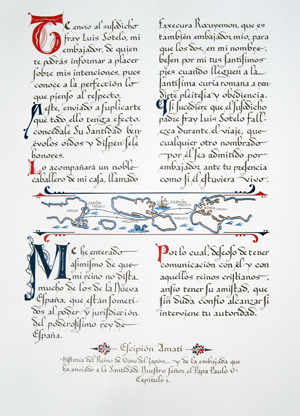 Te envío al susdicho
fray Luis Sotelo, mi
embajador, de quien
te padrás informar a placer
sobre mis intenciones, pues
conoce a la perfección lo
que pienso al respecto.
Aeste, enviado a suplicarte
que todo ello tenga efecto,
concedale Su Santidad ben
évolos oídos y dispensele
honores.
Lo acompañará un noble
caballero de mi casa, llamado
Faxecura Rocuyemon, que es
también embajador mio, para
que los dos, en mi nombre,
besen por mi tus santísimos
pies cuando lleguen a la
santísima curia romana a pen
dirte pleitesía y obediencia.
Y si sucediere que el susdicho
padre fray Luis Sotelo fall
ezca durante el viaje, que
cualquier otro nombrado
por él sea admitido por
embajador ante tu presencia
como si él estuviera vivo.
JAPÓN
ESPAÑA
Me he enterado
asimismo de que
mi reino no dista
mucho de los de la Nueva
España, que están someti
dos al poder y jurisdicción
del poderosísimo rey de
España.
Por lo cual, deseoso de tener
comunicación con él y con
aquellos reinos cristianos,
ansío tener su amistad, que
sin duda confío alcanzar si
interviene tu autoridad.
Escipión Amati
Historia del Reino de Voxu del Japón... y de la embajada que
ha enviado a la Santidad Nuestro señor el Papa Paulo V
Capítulo